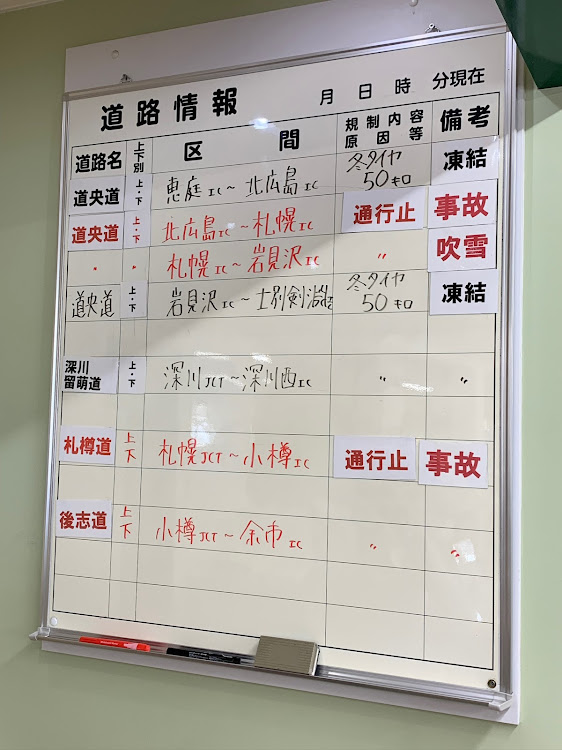 道路情報 月 日 時 分現在
道路名 上下別 区間 規制内容原因等 備考
道央道 上・下 恵庭IC～北広島IC 冬タイヤ 50キロ 凍結
道央道 上・下 北広島IC～札幌IC 通行止 事故
〃 〃 札幌IC～岩見沢IC 〃 吹雪
道央道 上・下 岩見沢IC～士別剣淵IC 冬タイヤ 50キロ 凍結
深川留萌道 上・下 深川JCT～深川西IC 〃 〃
札樽道 上下 札幌JCT～小樽IC 通行止 事故
後志道 上下 小樽JCT～余市IC 〃 〃